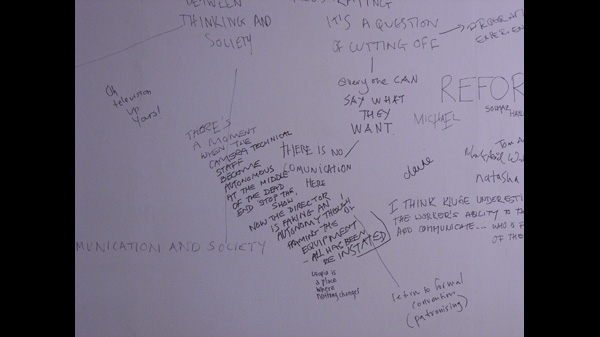 BETWEEN
THINKING AND
SOCIETY
IT'S A QUESTION
OF CUTTING OFF
everyone CAN
SAY WHAT
THEY
WANT.
REFOR
MICHAEL
Oh
television
up
yours!
THERE'S
A MOMENT
WHEN THE
CAMERA TECHNICAL
STAFF
BECOME
AUTONOMOUS
AT THE MIDDLE
OF THE DEAD
END STOP THE
SHOW.
THERE IS NO
COMUNICATION
HERE
NOW THE DIRECTOR
IS FAKING AN
AUTONOMY THOUGH
THE
EQUIPMENT
- ALL HAS BEEN
RE INSTATED
utopia is
a place
where
nothing changes
MUNICATION AND SOCIETY
dave
natasha
I THINK KLUGE UNDERESTI
THE WORKER'S ABILITY TO TH
AND COMMUNICATE... WHO IS
OF THE
return to formal
convention
(patronising)